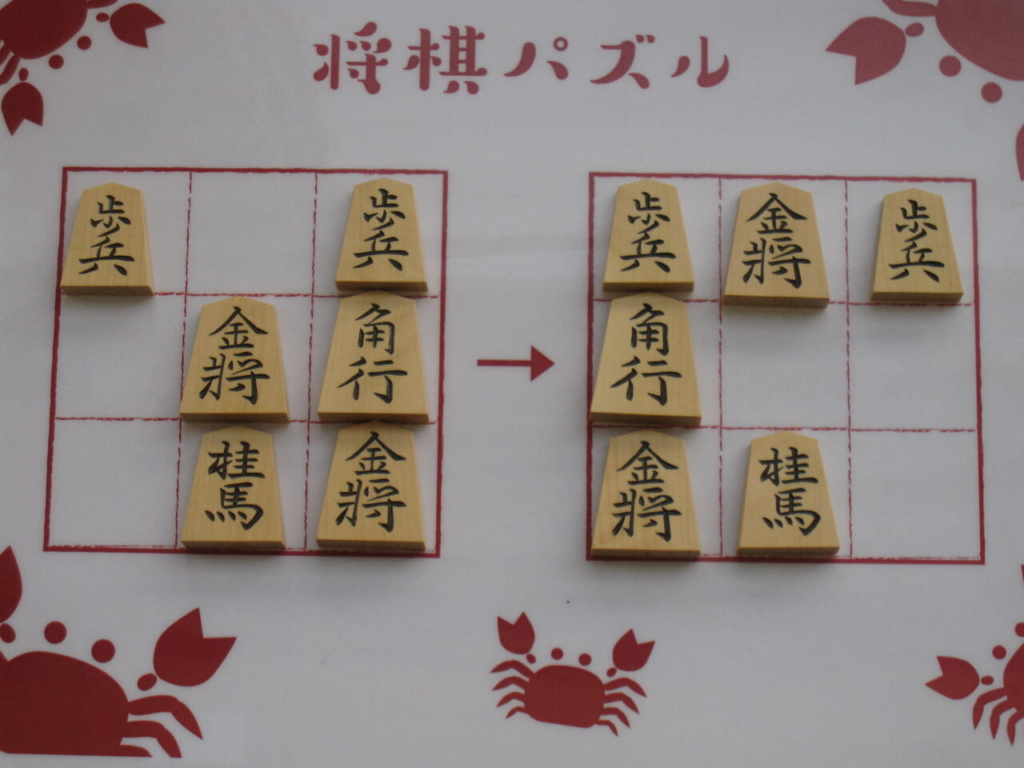 将棋パズル
歩兵
歩兵
金将
角行
桂馬
金将
歩兵
金将
歩兵
角行
金将
桂馬